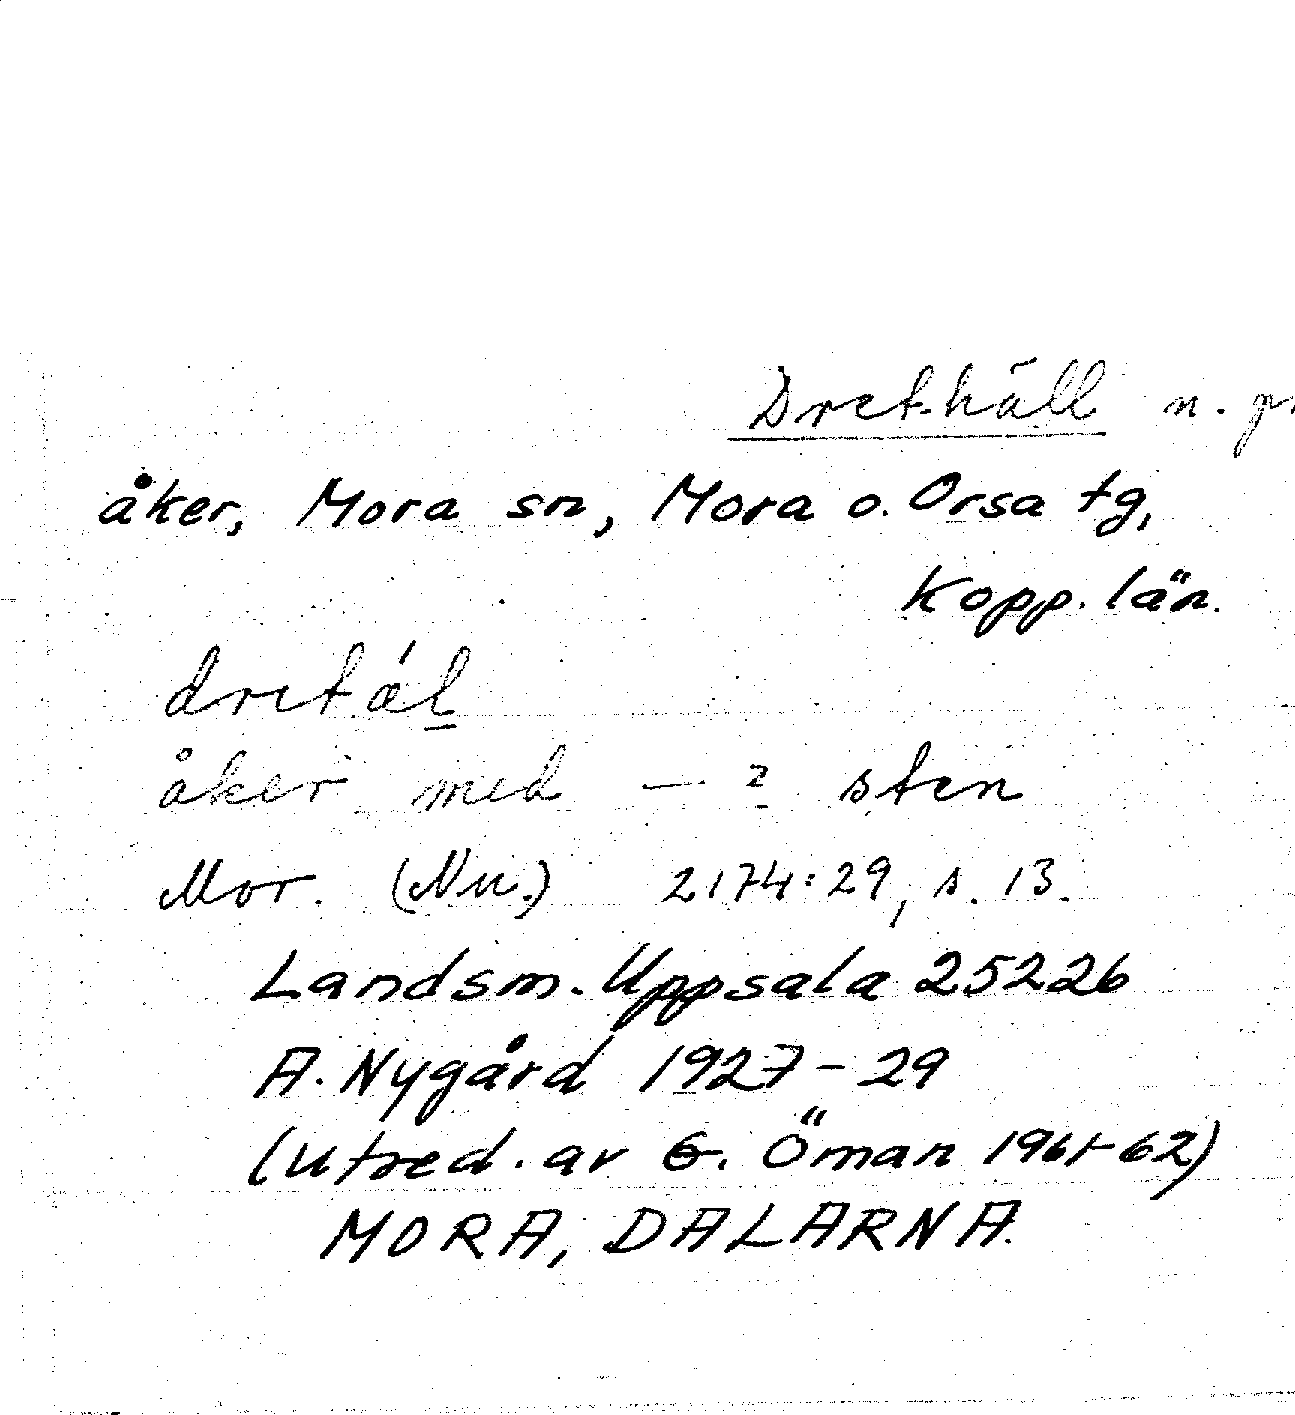 Dret-häll n. pr
åker, Mora sn, Mora o. Orsa tg,
Kopp. län.
åker med — ² sten
Mor. (Nu.) 2174:29, s. 13.
Landsm. Uppsala 25226
A. Nygård 1927-29
(utred. av G. Öman 1961-62)
MORA, DALARNA.